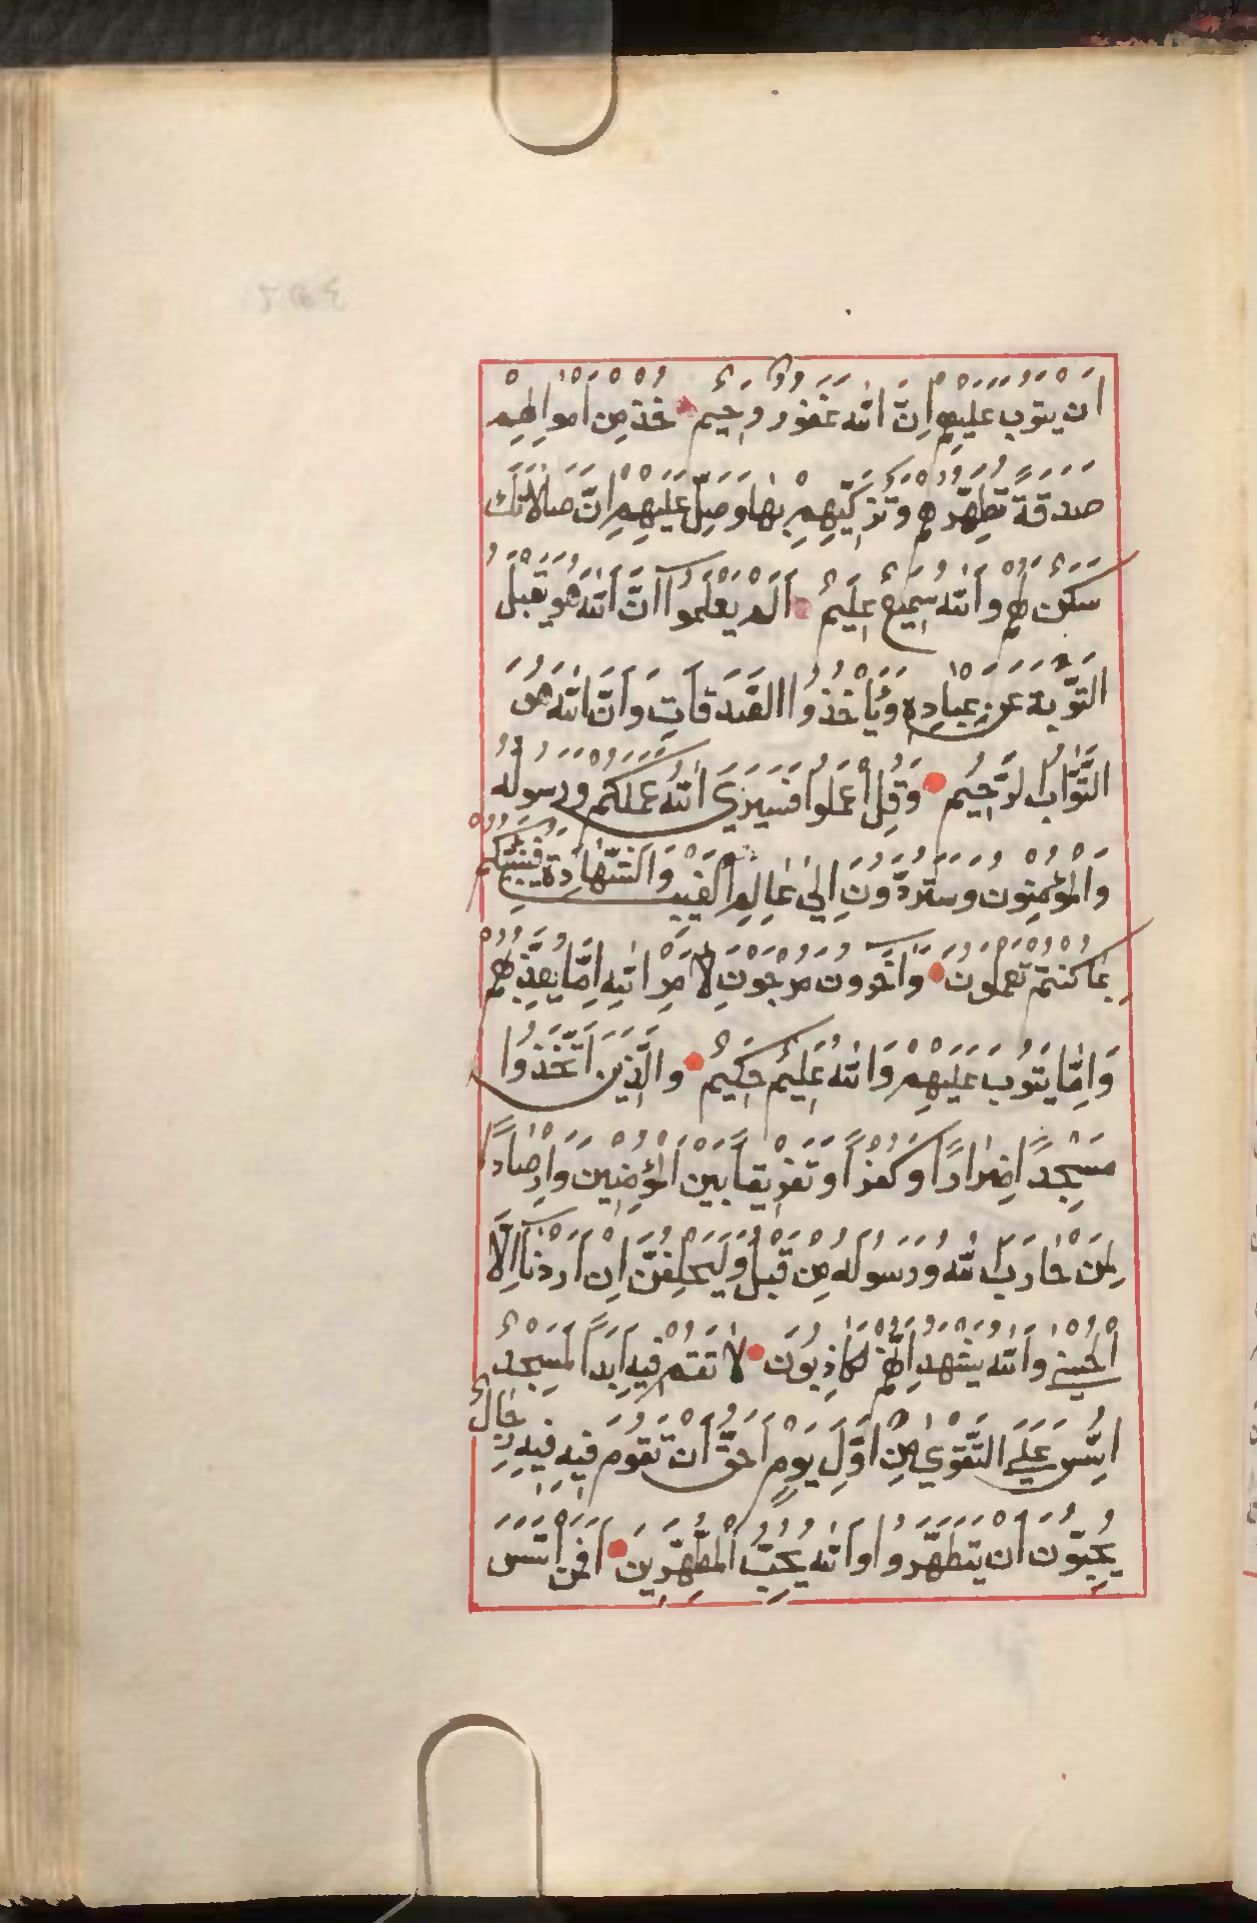 ان يتوب عليهم انّ الله غفور رحيم خذ من اموالهم
صدقة تطهّرهم وتزكّيهم بها وصلّ عليهم انّ صلاتك
سكن لهم والله سميع عليم الم يعلموا انّ الله هو يقبل
التوبة عن عباده وياخذوا الصّدقات وانّ الله هو
التّوّاب الرّحيم وقل اعملوا فسيري الله عملكم ورسوله
والمؤمنون وستردّون الي عالم الغيب والشّهادة فينبّئكم
بما كنتم تعملون واخرون مرجون لامر الله امّا يعذّبهم
وامّا يتوب عليهم والله عليم حكيم والّذين اتّخذوا
مسجدا ضرارا وكفرا وتفريقا بين المؤمنين وارصادا
لمن حارب الله ورسوله من قبل وليحلفنّ ان اردنا الّا
الحسني والله يشهد انّهم لكاذبون لا تقم فيه ابدا لمسجد
اسّس علي التّقوي من اوّل يوم احقّ ان تقوم فيه فيه رجال
يحبّون ان يتطهّروا والله يحبّ المطّهّرين افمن اسّس